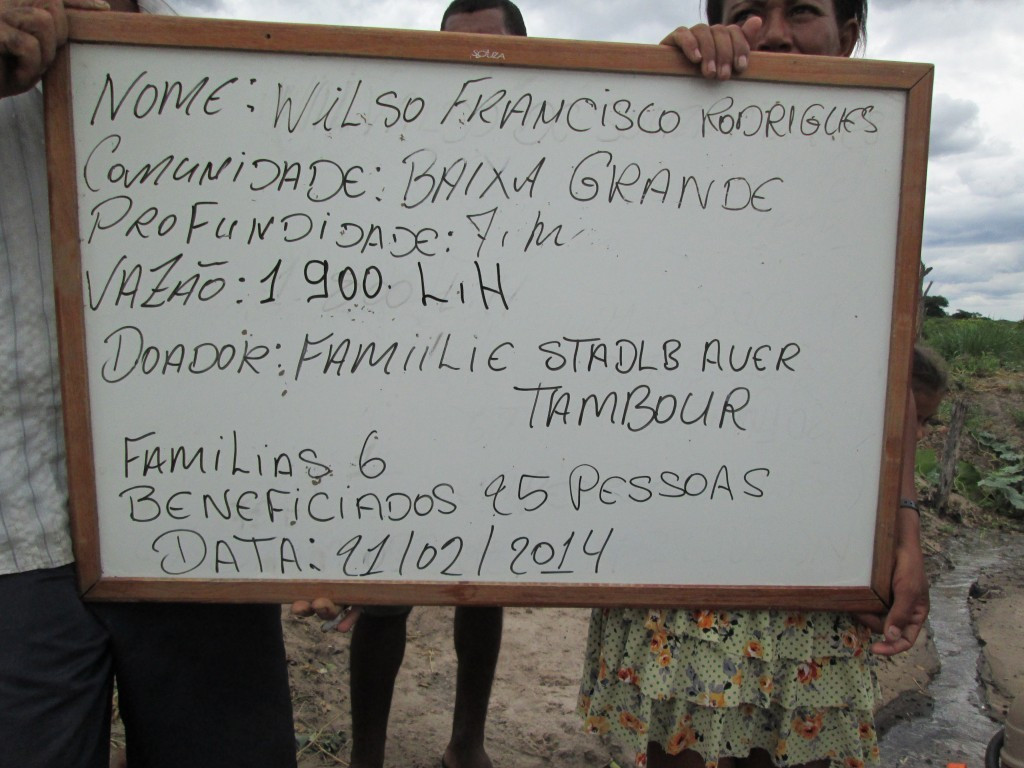 NOME: WILSO FRANCISCO RODRIGUES
COMUNIDADE: BAIXA GRANDE
PROFUNDIDADE: 7, M
VAZÃO: 1 900. L,H
DOADOR: FAMIILIE STADLB AUER
TAMBOUR
FAMILIAS 6
BENEFICIADOS 25 PESSOAS
DATA: 21/02/2014